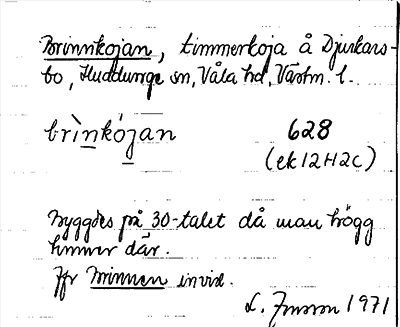 Brinnkojan, timmerkoja å Djurkars-
bo, Huddunge sn, Våla hd, Västm. l.
brìnkójan 628
(ek 12H2c)
Byggdes på 30-talet då man högg
timmer där.
Jfr Brinnen invid.
L. Jonsson 1971